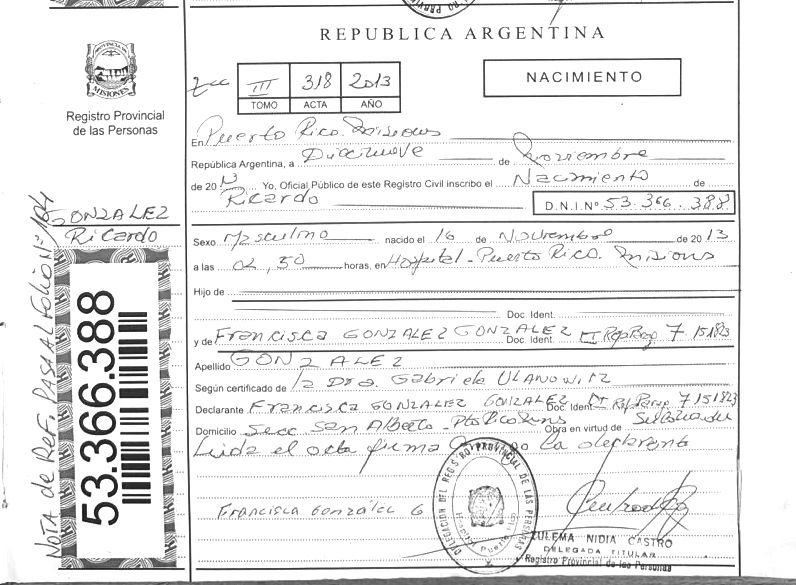 REPUBLICA ARGENTINA
PROVINCIA DE
MISIONES
Registro Provincial
de las Personas
III 318 2013
TOMO ACTA AÑO
NACIMIENTO
En Puerto Rico. Misiones
República Argentina, a Diecinueve de Noviembre
de 2013 Yo, Oficial Público de este Registro Civil inscribo el Nacimiento de
Ricardo D.N.I.Nº 53.366.388
GONZALEZ
Ricardo
Sexo Masculino nacido el 16 de Noviembre de 2013
a las 02,30 horas, en Hospital - Puerto Rico. Misiones
Hijo de
Doc. Ident.
y de Francisca GONZALEZ GONZALEZ Doc. Ident. CI Rep Parag 7151823
Apellido GONZALEZ
Según certificado de la Dra. Gabriela ULANOWICZ
Declarante Francisca GONZALEZ GONZALEZ Doc. Ident. CI Rep Parag 7151823
Domicilio Secc San Alberto - Pto Rico Obra en virtud de
Leida el acta firma la declarante
Francisca González G
DELEGACION DEL REGISTRO PROVINCIAL DE LAS PERSONAS
ZULEMA NIDIA CASTRO
DELEGADA TITULAR
Registro Provincial de las Personas
53.366.388
NOTA de Ref. PASA AL Folio Nº 184